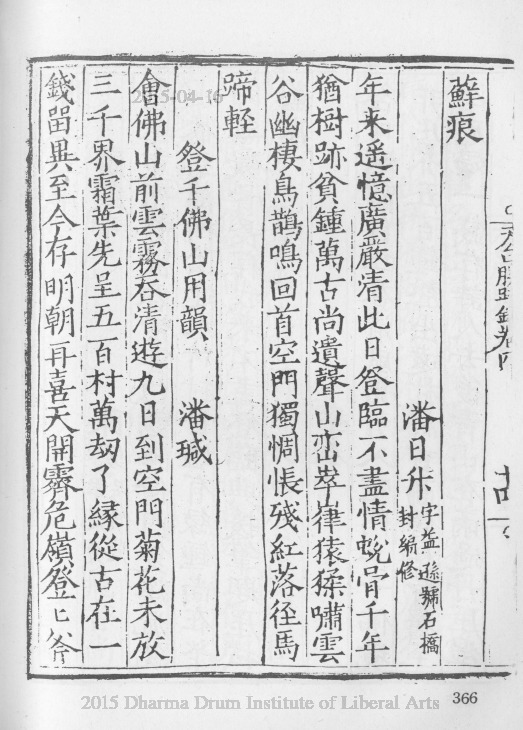 天台勝蹟錄卷四
蘚痕
潘日升 字益遜號石橋
封編修
年来遥憶廣嚴清此日登臨不盡情蛻骨千年
猶樹跡貧鍾萬古尚遺聲山峦崒嵂猿猱嘯雲
谷幽棲鳥鵲鳴回首空門獨惆悵殘紅落徑馬
蹄輕
登千佛山用韻 潘瑊
會佛山前雲霧吞清遊九日到空門菊花未放
三千界霜葉先呈五百村萬刼了緣從古在一
錢畱異至今存明朝再喜天開霽危嶺登匕
2015-04-16
2015 Dharma Drum Institute of Liberal Arts
366